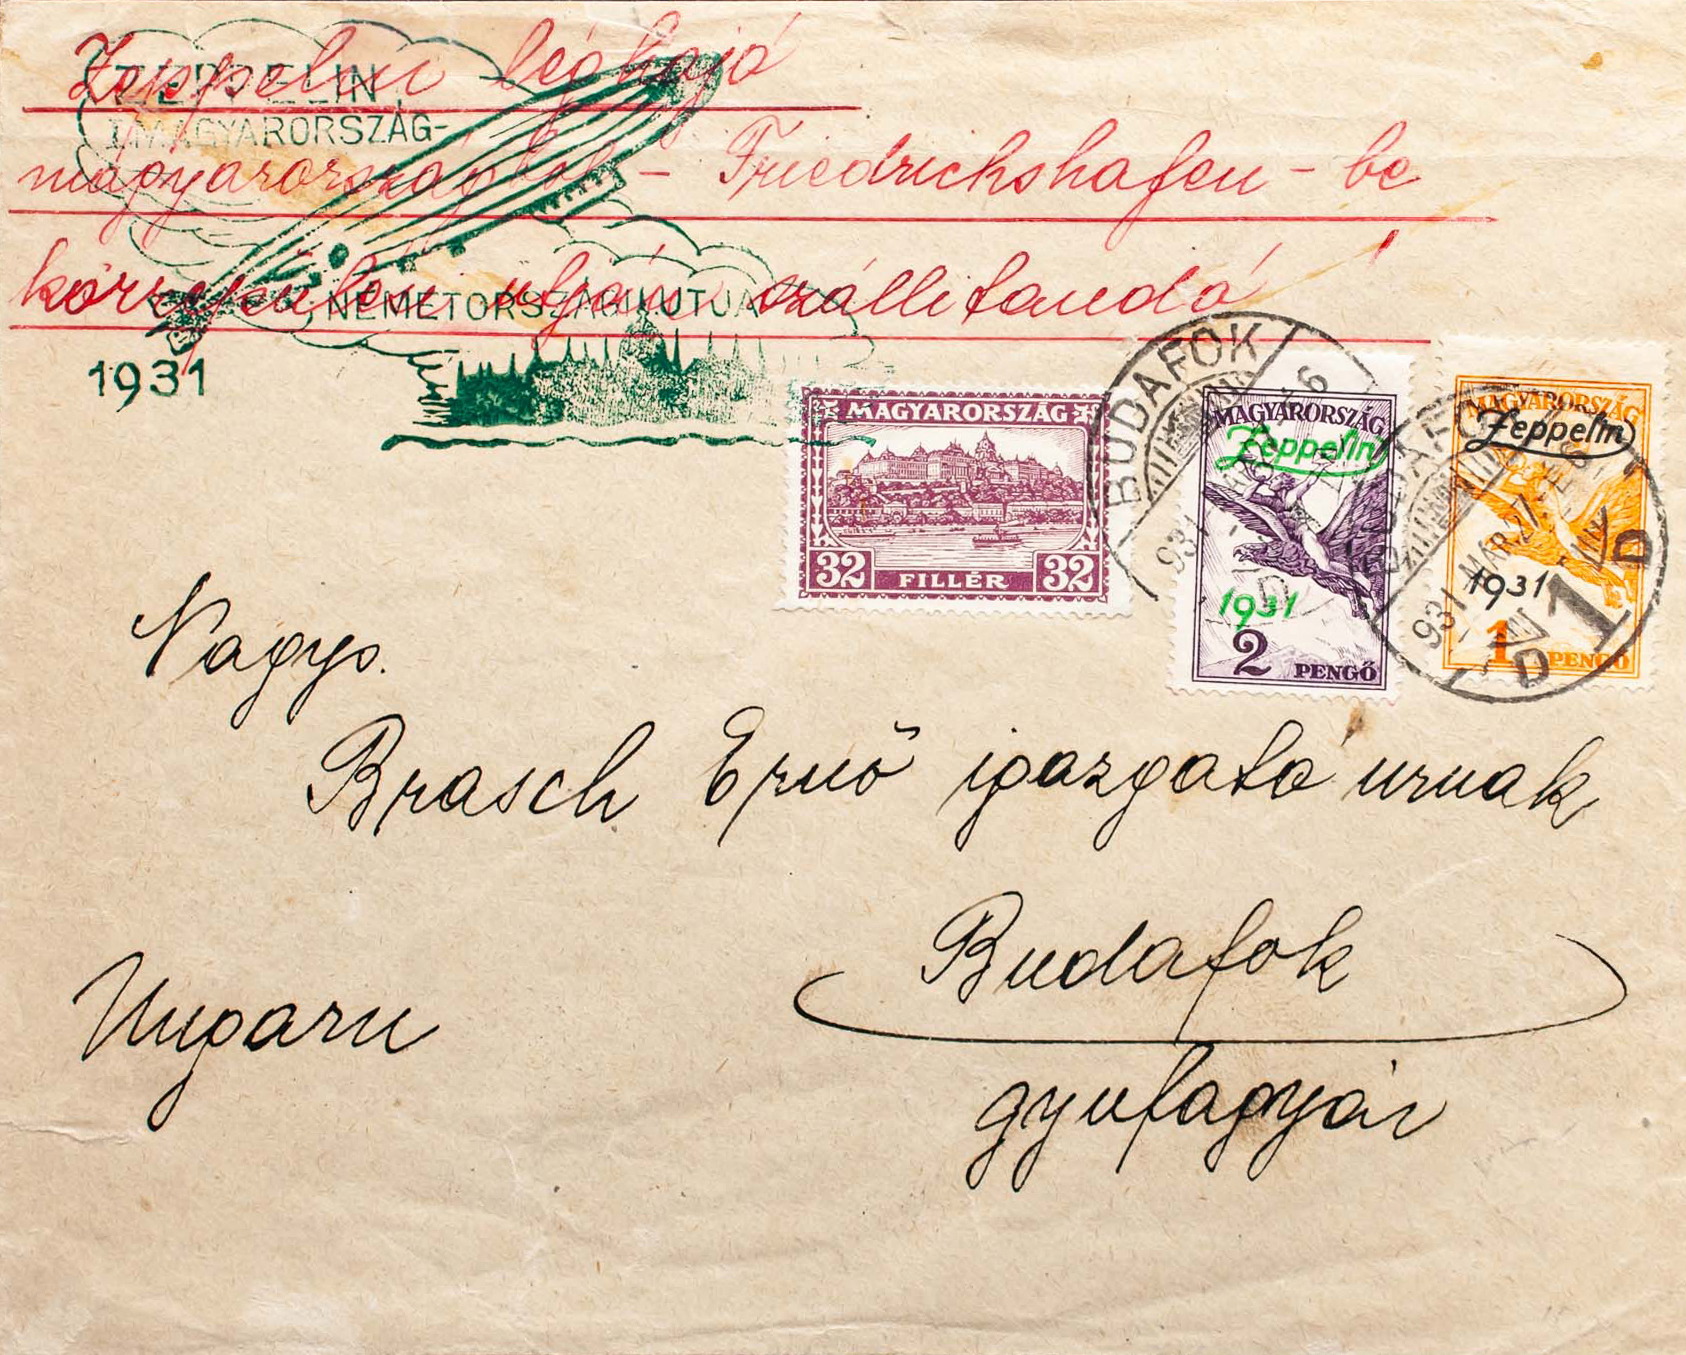 Zeppelin léghajó
magyarországból - Friedrichshafen - be
körrepülési utján szállitandó
ZEPPELIN
I. MAGYARORSZÁG-
NÉMETORSZÁGI UTJA
1931
MAGYARORSZÁG
32 FILLÉR 32
BUDAFOK
931
D
MAGYARORSZÁG
Zeppelin
1931
2 PENGŐ
MAGYARORSZÁG
Zeppelin
1931
1 PENGŐ
931 MÁR 27.
1D
Nagys.
Brasch Ernő igazgató urnak
Budafok
Ungarn
gyufagyár